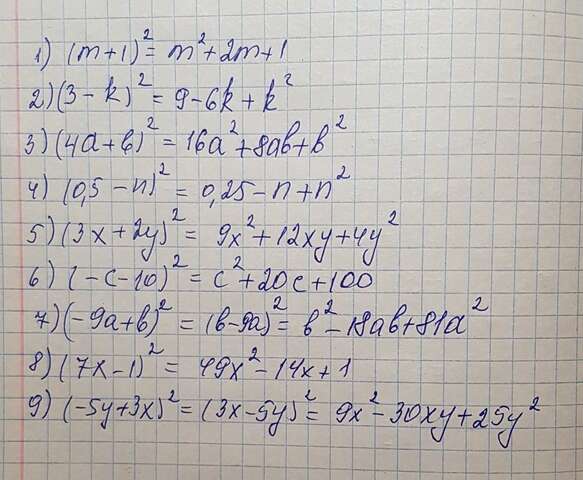 1) (m+1)² = m²+2m+1
2) (3-k)² = 9-6k+k²
3) (4a+b)² = 16a²+8ab+b²
4) (0,5-n)² = 0,25-n+n²
5) (3x+2y)² = 9x²+12xy+4y²
6) (-c-10)² = c²+20c+100
7) (-9a+b)² = (b-9a)² = b²-18ab+81a²
8) (7x-1)² = 49x²-14x+1
9) (-5y+3x)² = (3x-5y)² = 9x²-30xy+25y²